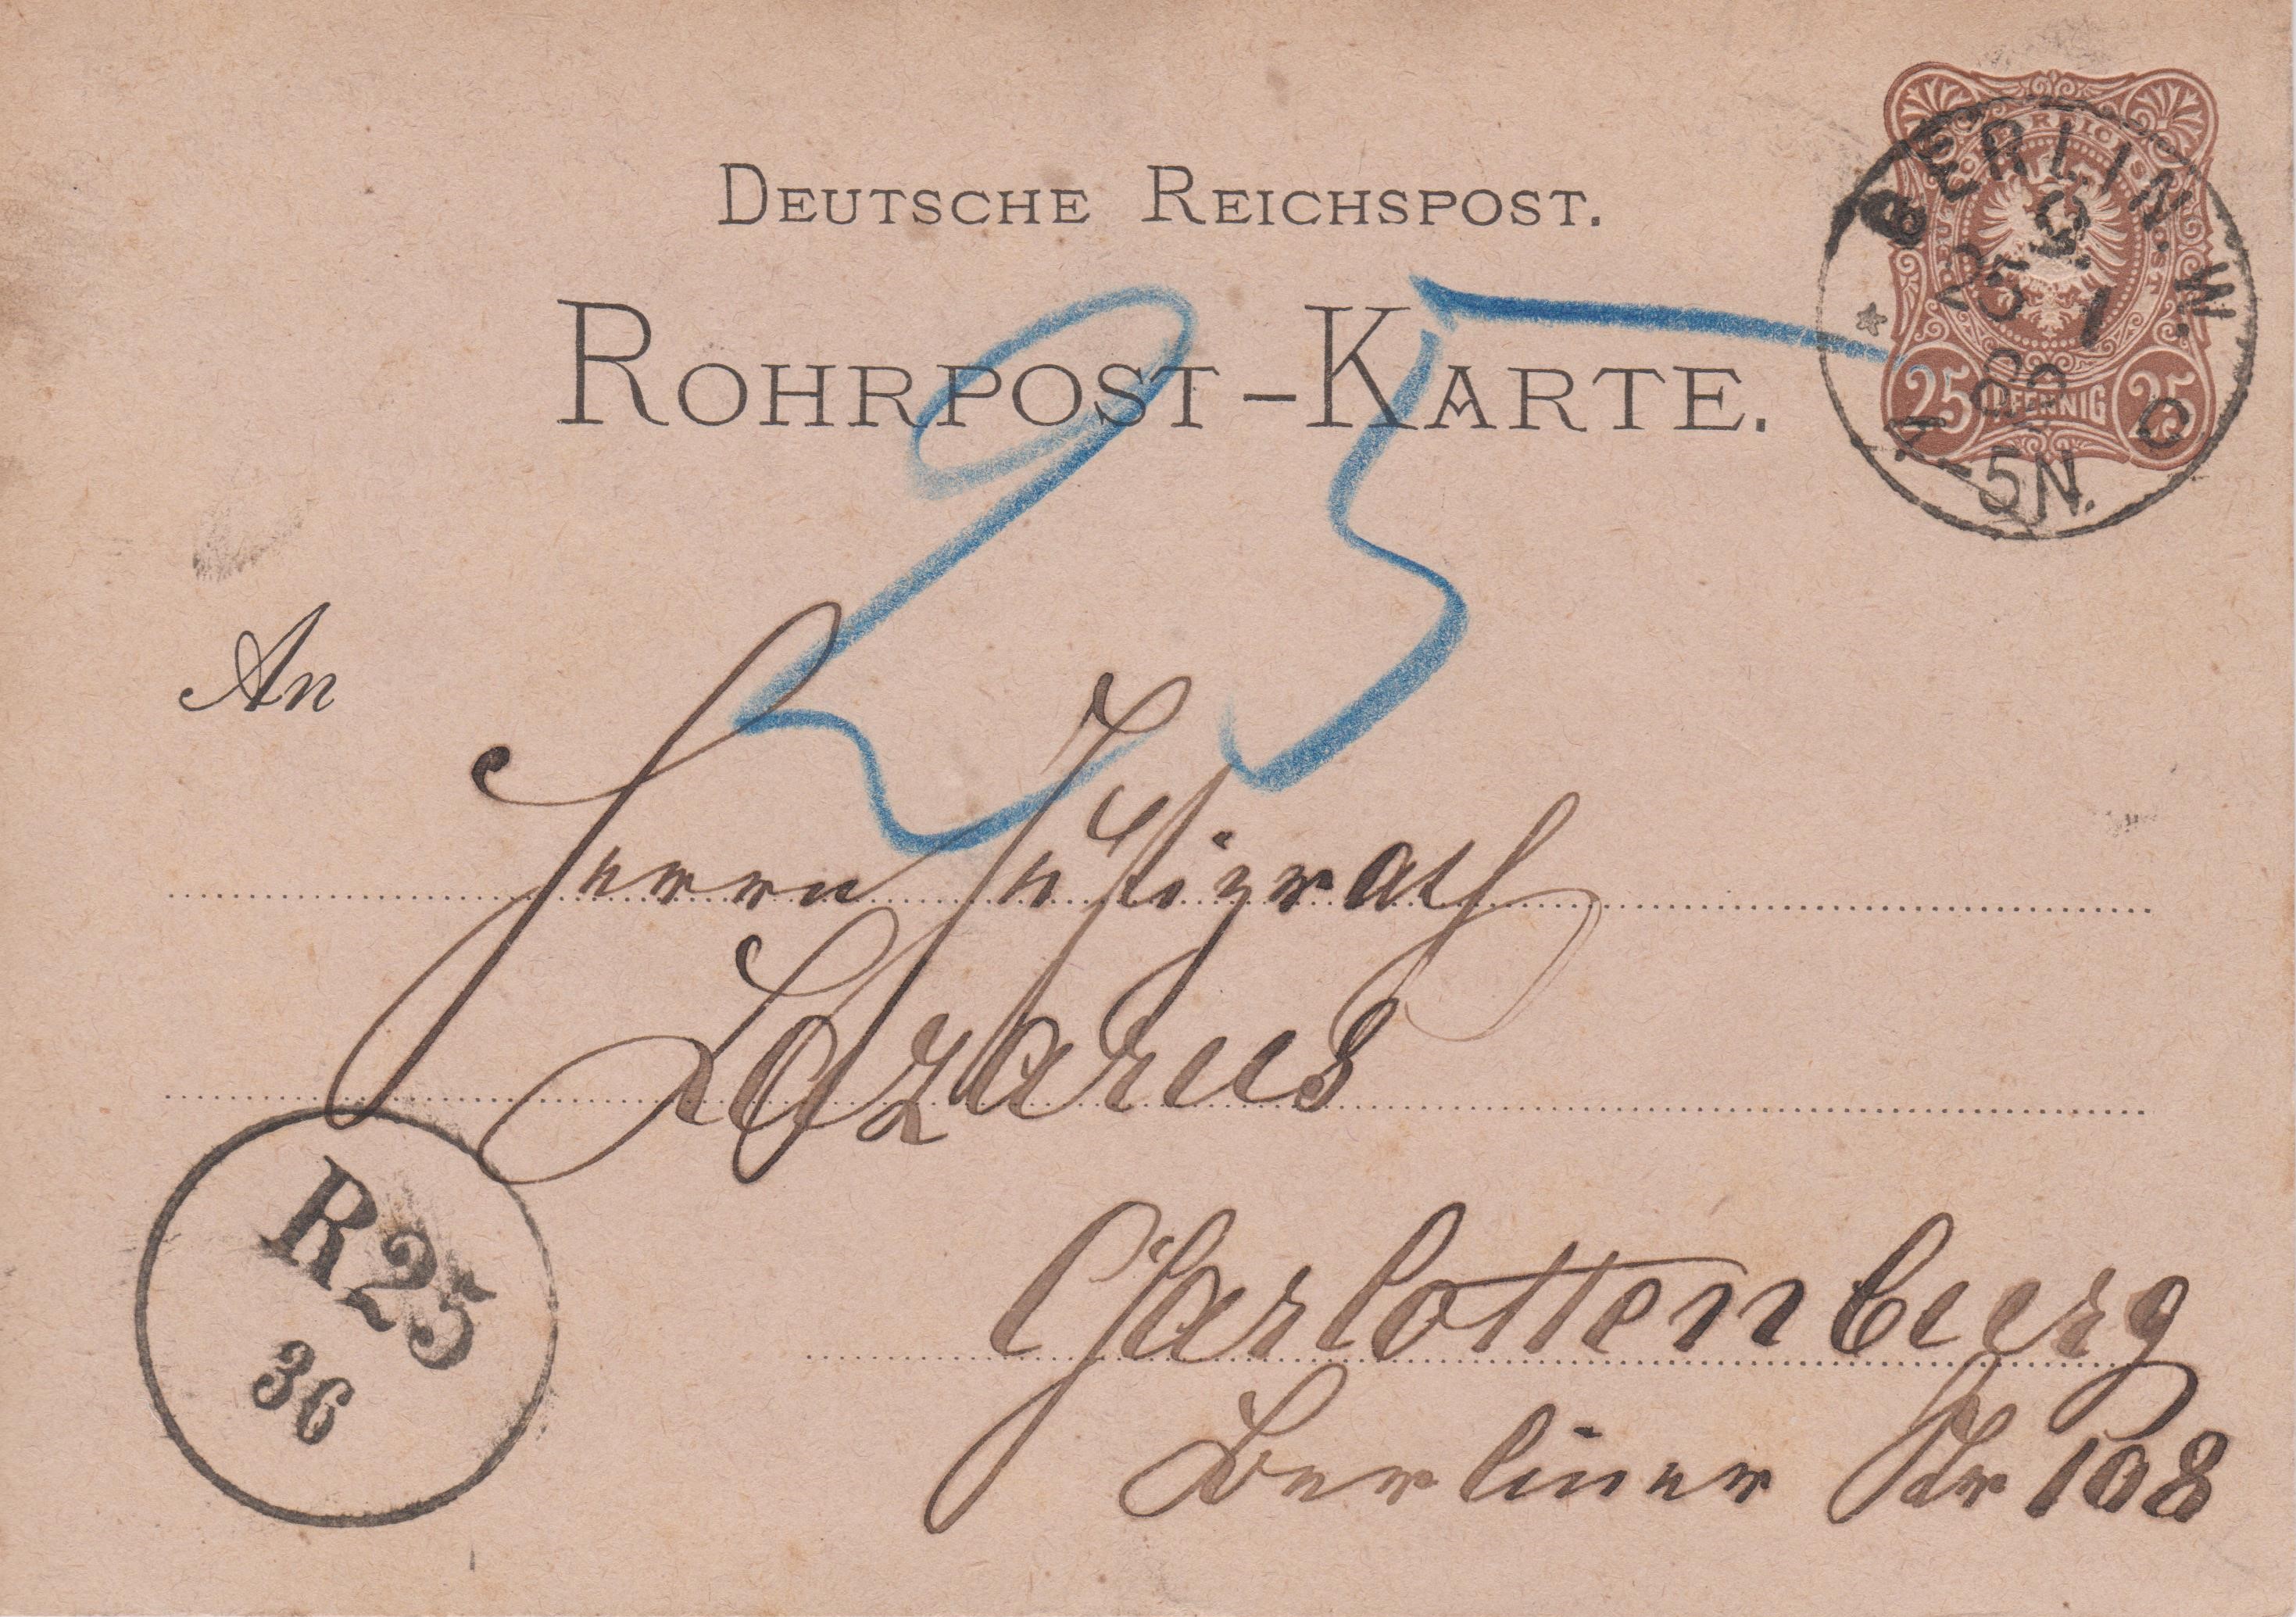 DEUTSCHE REICHSPOST.
ROHRPOST-KARTE.
BERLIN. W.
9.
25 1
82
4-5N.
25 PFENNIG 25
25
An
Herrn Justizrath
Lazarus
Charlottenburg
Berliner Str 108
R25
36